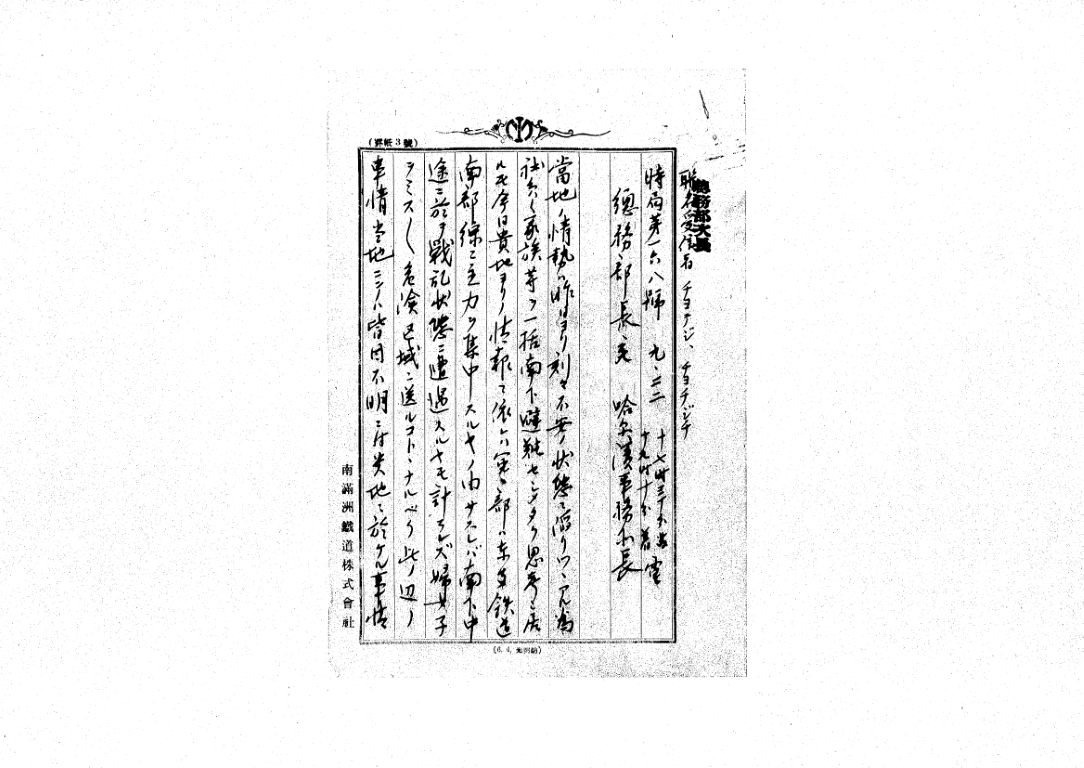 (罫紙3號)
總務部次長
聯名受信者 チヨチジ、チヨチジチ
時局第一六八號 九、二二 十七時三十分発
十九時十分着電
總務部長宛 哈爾濱事務所長
當地ノ情勢ハ昨日ヨリ刻々不安ノ状態ニ陥リツヽアル為
社員家族等ヲ一括南下避難センメタク思考シ居
ルモ今日貴地ヨリノ情報ニ依レハ軍ノ部ハ東支鉄道
南部線ニ主力ヲ集中スルヤノ由サスレバ南下中
途ニ於テ戦乱状態ニ遭遇スルヤモ計ラレズ婦女子
ラミスミス危険区域ニ送ルコトヽナルベク此ノ辺ノ
事情当地ニシハ皆目不明ニ付貴地ニ於ケル事情
南滿洲鐵道株式會社